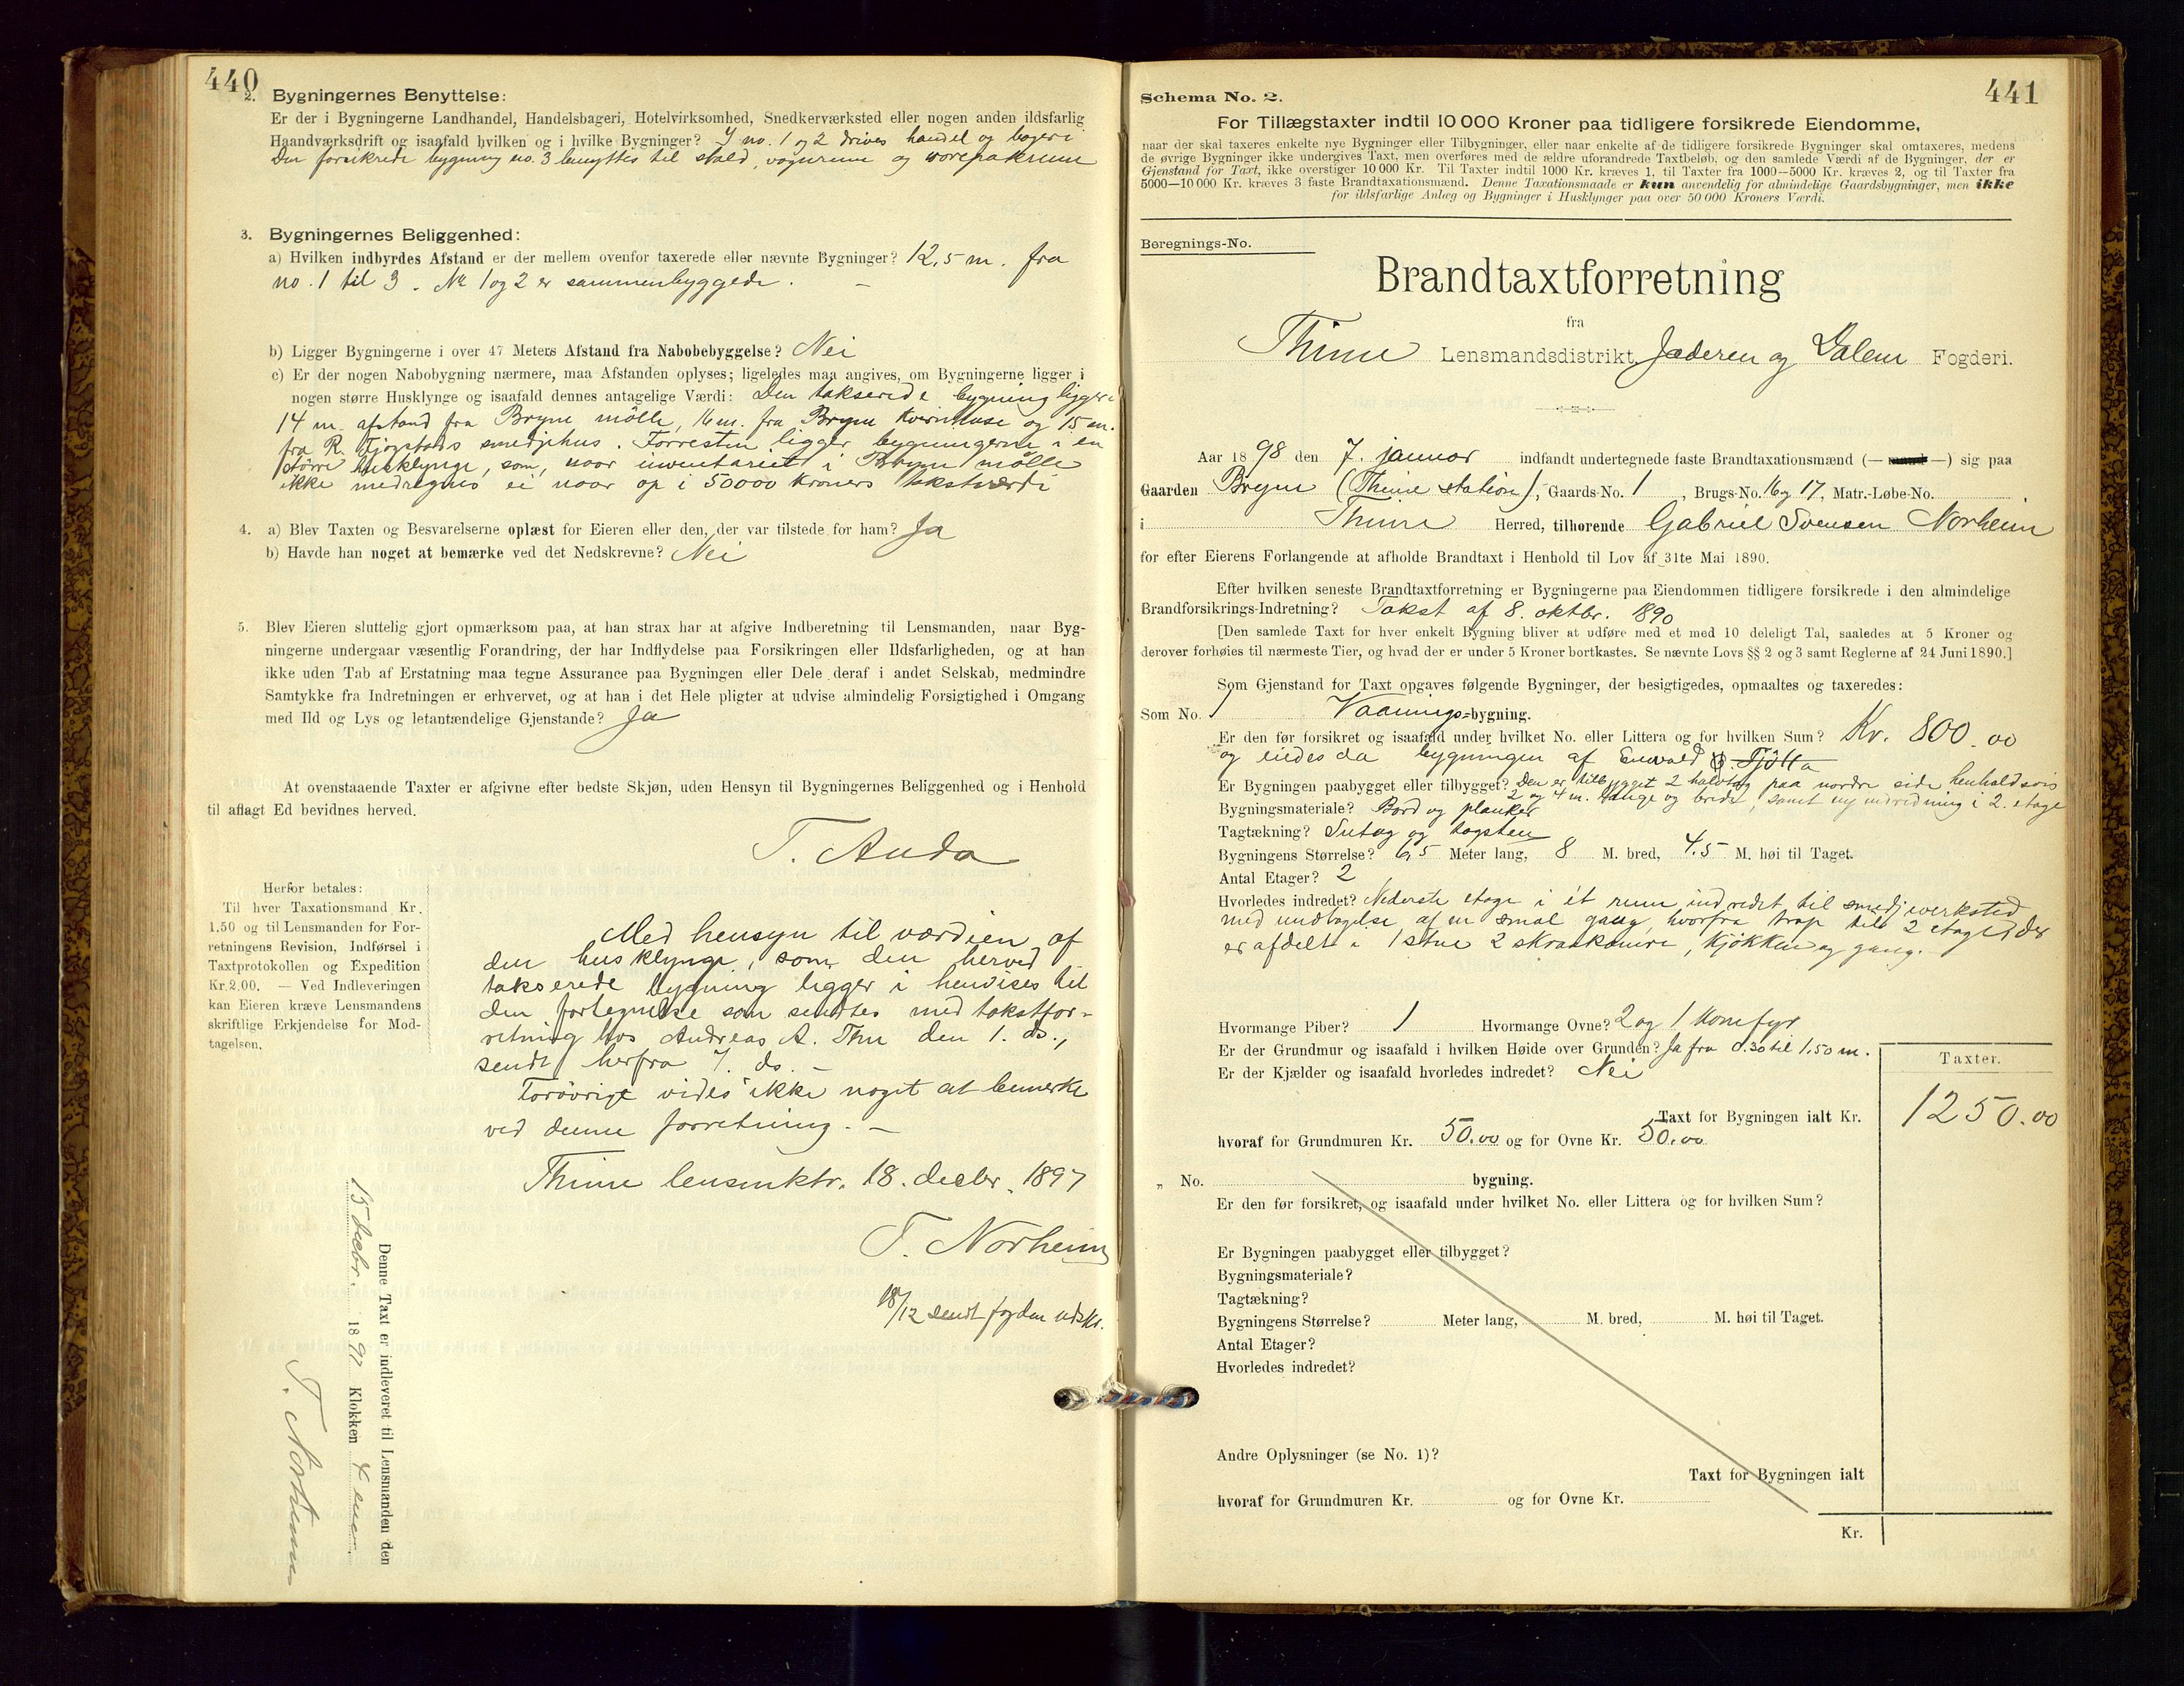 440
2. Bygningernes Benyttelse:
Er der i Bygningerne Landhandel, Handelsbageri, Hotelvirksomhed, Snedkerværksted eller nogen anden ildsfarlig
Haandværksdrift og isaafald hvilken og i hvilke Bygninger? I no. 1 og 2 drives handel og bageri
Den forsikrede bygning no. 3 benyttes til stald, vognrum og varepakrum
3. Bygningernes Beliggenhed:
a) Hvilken indbyrdes Afstand er der mellem ovenfor taxerede eller nævnte Bygninger? 12,5 m. fra
no. 1 til 3. No 1 og 2 er sammenbyggede. –
b) Ligger Bygningerne i over 47 Meters Afstand fra Nabobebyggelse? Nei
c) Er der nogen Nabobygning nærmere, maa Afstanden oplyses; ligeledes maa angives, om Bygningerne ligger i
nogen større Husklynge og isaafald dennes antagelige Værdi: Den takserede bygning ligger i
14 m. afstand fra Bryne mölle, 16 m. fra Bryne kvernhuse og 15 m.
fra R. Fjogstads smedjehus. Forresten ligger bygningerne i en
større husklynge, som, naar inventariet i Bryne mölle
ikke medregnes ei naar op i 50000 kroners takstværdi
4. a) Blev Taxten og Besvarelserne oplæst for Eieren eller den, der var tilstede for ham? Ja
b) Havde han noget at bemærke ved det Nedskrevne? Nei
5. Blev Eieren sluttelig gjort opmærksom paa, at han strax har at afgive Indberetning til Lensmanden, naar Byg-
ningerne undergaar væsentlig Forandring, der har Indflydelse paa Forsikringen eller Ildsfarligheden, og at han
ikke uden Tab af Erstatning maa tegne Assurance paa Bygningen eller Dele deraf i andet Selskab, medmindre
Samtykke fra Indretningen er erhvervet, og at han i det Hele pligter at udvise almindelig Forsigtighed i Omgang
med Ild og Lys og letantændelige Gjenstande? Ja
At ovenstaaende Taxter er afgivne efter bedste Skjøn, uden Hensyn til Bygningernes Beliggenhed og i Henhold
til aflagt Ed bevidnes herved.
T. Auda
Herfor betales:
Til hver Taxationsmand Kr.
1.50 og til Lensmanden for For-
retningens Revision, Indførsel i
Taxtprotokollen og Expedition
Kr. 2.00. — Ved Indleveringen
kan Eieren kræve Lensmandens
skriftlige Erkjendelse for Mod-
tagelsen.
Med hensyn til værdien af
den husklynge, som den herved
takserede bygning ligger i henvises til
den fortegnelse som sendtes med takstfor-
retning hos Andreas A. Thu den 1. ds.,
sendt herfra 7. ds. –
Forövrigt vides ikke noget at bemerke
ved denne forretning. –
Thime lensmktr. 18. decbr. 1897
T. Norheim
18/12 sendt fogden udskr.
Denne Taxt er indleveret til Lensmanden den
15 decbr. 1897 Klokken 4 em.
T. Norheim
441
Schema No. 2.
For Tillægstaxter indtil 10 000 Kroner paa tidligere forsikrede Eiendomme,
naar der skal taxeres enkelte nye Bygninger eller Tilbygninger, eller naar enkelte af de tidligere forsikrede Bygninger skal omtaxeres, medens
de øvrige Bygninger ikke undergives Taxt, men overføres med de ældre uforandrede Taxtbeløb, og den samlede Værdi af de Bygninger, der er
Gjenstand for Taxt, ikke overstiger 10 000 Kr. Til Taxter indtil 1000 Kr. kræves 1, til Taxter fra 1000—5000 Kr. kræves 2, og til Taxter fra
5000—10 000 Kr. kræves 3 faste Brandtaxationsmænd. Denne Taxationsmaade er kun anvendelig for almindelige Gaardsbygninger, men ikke
for ildsfarlige Anlæg og Bygninger i Husklynger paa over 50 000 Kroners Værdi.
Beregnings-No.
Brandtaxtforretning
fra
Thime Lensmandsdistrikt, Jæderen og Dalene Fogderi.
Aar 1898 den 7. januar indfandt undertegnede faste Brandtaxationsmænd (—mand—) sig paa
Gaarden Bryne (Thime station), Gaards-No. 1, Brugs-No. 16 og 17, Matr.-Løbe-No.
i Thime Herred, tilhørende Gabriel Svensen Norheim
for efter Eierens Forlangende at afholde Brandtaxt i Henhold til Lov af 31te Mai 1890.
Efter hvilken seneste Brandtaxtforretning er Bygningerne paa Eiendommen tidligere forsikrede i den almindelige
Brandforsikrings-Indretning? Takst af 8. oktbr. 1890
[Den samlede Taxt for hver enkelt Bygning bliver at udføre med et med 10 deleligt Tal, saaledes at 5 Kroner og
derover forhøies til nærmeste Tier, og hvad der er under 5 Kroner bortkastes. Se nævnte Lovs §§ 2 og 3 samt Reglerne af 24 Juni 1890.]
Som Gjenstand for Taxt opgaves følgende Bygninger, der besigtigedes, opmaaltes og taxeredes:
Som No. 1 Vaanings-bygning.
Er den før forsikret og isaafald under hvilket No. eller Littera og for hvilken Sum? Kr. 800.00
og eiedes da bygningen af Enevald Tjötta
Er Bygningen paabygget eller tilbygget? Den er tilbygget 2 halvtag paa nordre side henholdsvis
2 og 4 m. lange og brede, samt ny indredning i 2. etage
Bygningsmateriale? Bord og planker
Tagtækning? Sutag og tagsten
Bygningens Størrelse? 6,5 Meter lang, 8 M. bred, 4.5 M. høi til Taget.
Antal Etager? 2
Hvorledes indredet? Nederste etage i ét rum indredet til smedjeverksted
med undtagelse af en smal gang, hvorfra trap til 2 etage, der
er afdelt i 1 stue 2 skraakamre, kjökken og gang.
Hvormange Piber? 1 Hvormange Ovne? 2 og 1 komfyr
Er der Grundmur og isaafald i hvilken Høide over Grunden? Ja fra 0.30 til 1.50 m.
Er der Kjælder og isaafald hvorledes indredet? Nei
Taxter.
Taxt for Bygningen ialt Kr. 1250.00
hvoraf for Grundmuren Kr. 50.00 og for Ovne Kr. 50.00
„ No. bygning.
Er den før forsikret, og isaafald under hvilket No. eller Littera og for hvilken Sum?
Er Bygningen paabygget eller tilbygget?
Bygningsmateriale?
Tagtækning?
Bygningens Størrelse? Meter lang, M. bred, M. høi til Taget.
Antal Etager?
Hvorledes indredet?
Andre Oplysninger (se No. 1)?
Taxt for Bygningen ialt
hvoraf for Grundmuren Kr. og for Ovne Kr.
Kr.